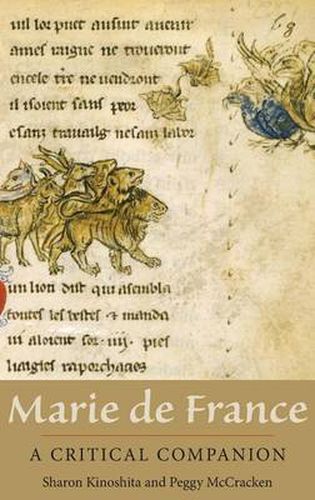 uil lor puet auſint auenir
68
ames uaigne ne troueront
encele tr̄e ne uendront
il iſoient ſanz peor
eſanz trauailg neſanz labor
un lion diſt qui aſembla
toutes les beſtes ⁊ manda
ui aloient ſor .iiii. piés
Marie de France
A CRITICAL COMPANION
Sharon Kinoshita and Peggy McCracken